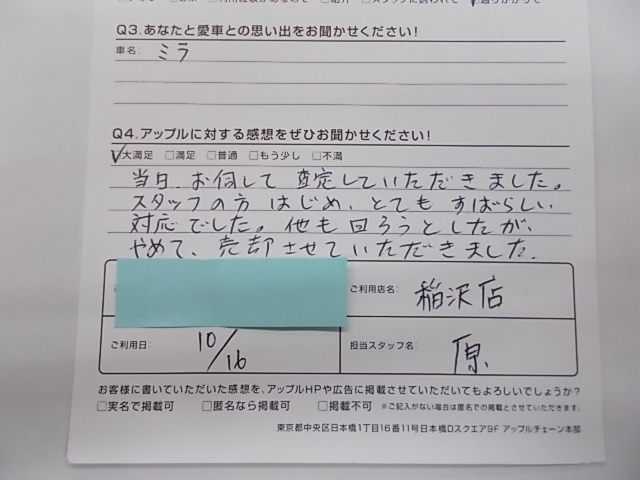 Q3.あなたと愛車との思い出をお聞かせください!
車名: ミラ
Q4.アップルに対する感想をぜひお聞かせください!
☑大満足 □満足 □普通 □もう少し □不満
当日、お伺して査定していただきました。
スタッフの方はじめ、とてもすばらしい
対応でした。他も回ろうとしたが、
やめて、売却させていただきました。
ご利用店名: 稲沢店
ご利用日: 10/16 担当スタッフ名: 原
お客様に書いていただいた感想を、アップルHPや広告に掲載させていただいてもよろしいでしょうか?
□実名で掲載可 □匿名なら掲載可 □掲載不可 ※ご記入がない場合は匿名での掲載とさせていただきます。
東京都中央区日本橋1丁目16番11号日本橋Dスクエア9F アップルチェーン本部